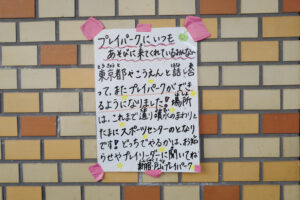 プレイパークにいつも
あそびに来てくれているみんなへ
東京都やこうえんと話し合
って、またプレイパークができ
るようになりました!! 場所
は、これまで通り噴水のまわりと
たまにスポーツセンターのとなり
です!! どっちでやるかは、お知
らせやプレイリーダーに聞いてね
新宿・戸山プレイパーク